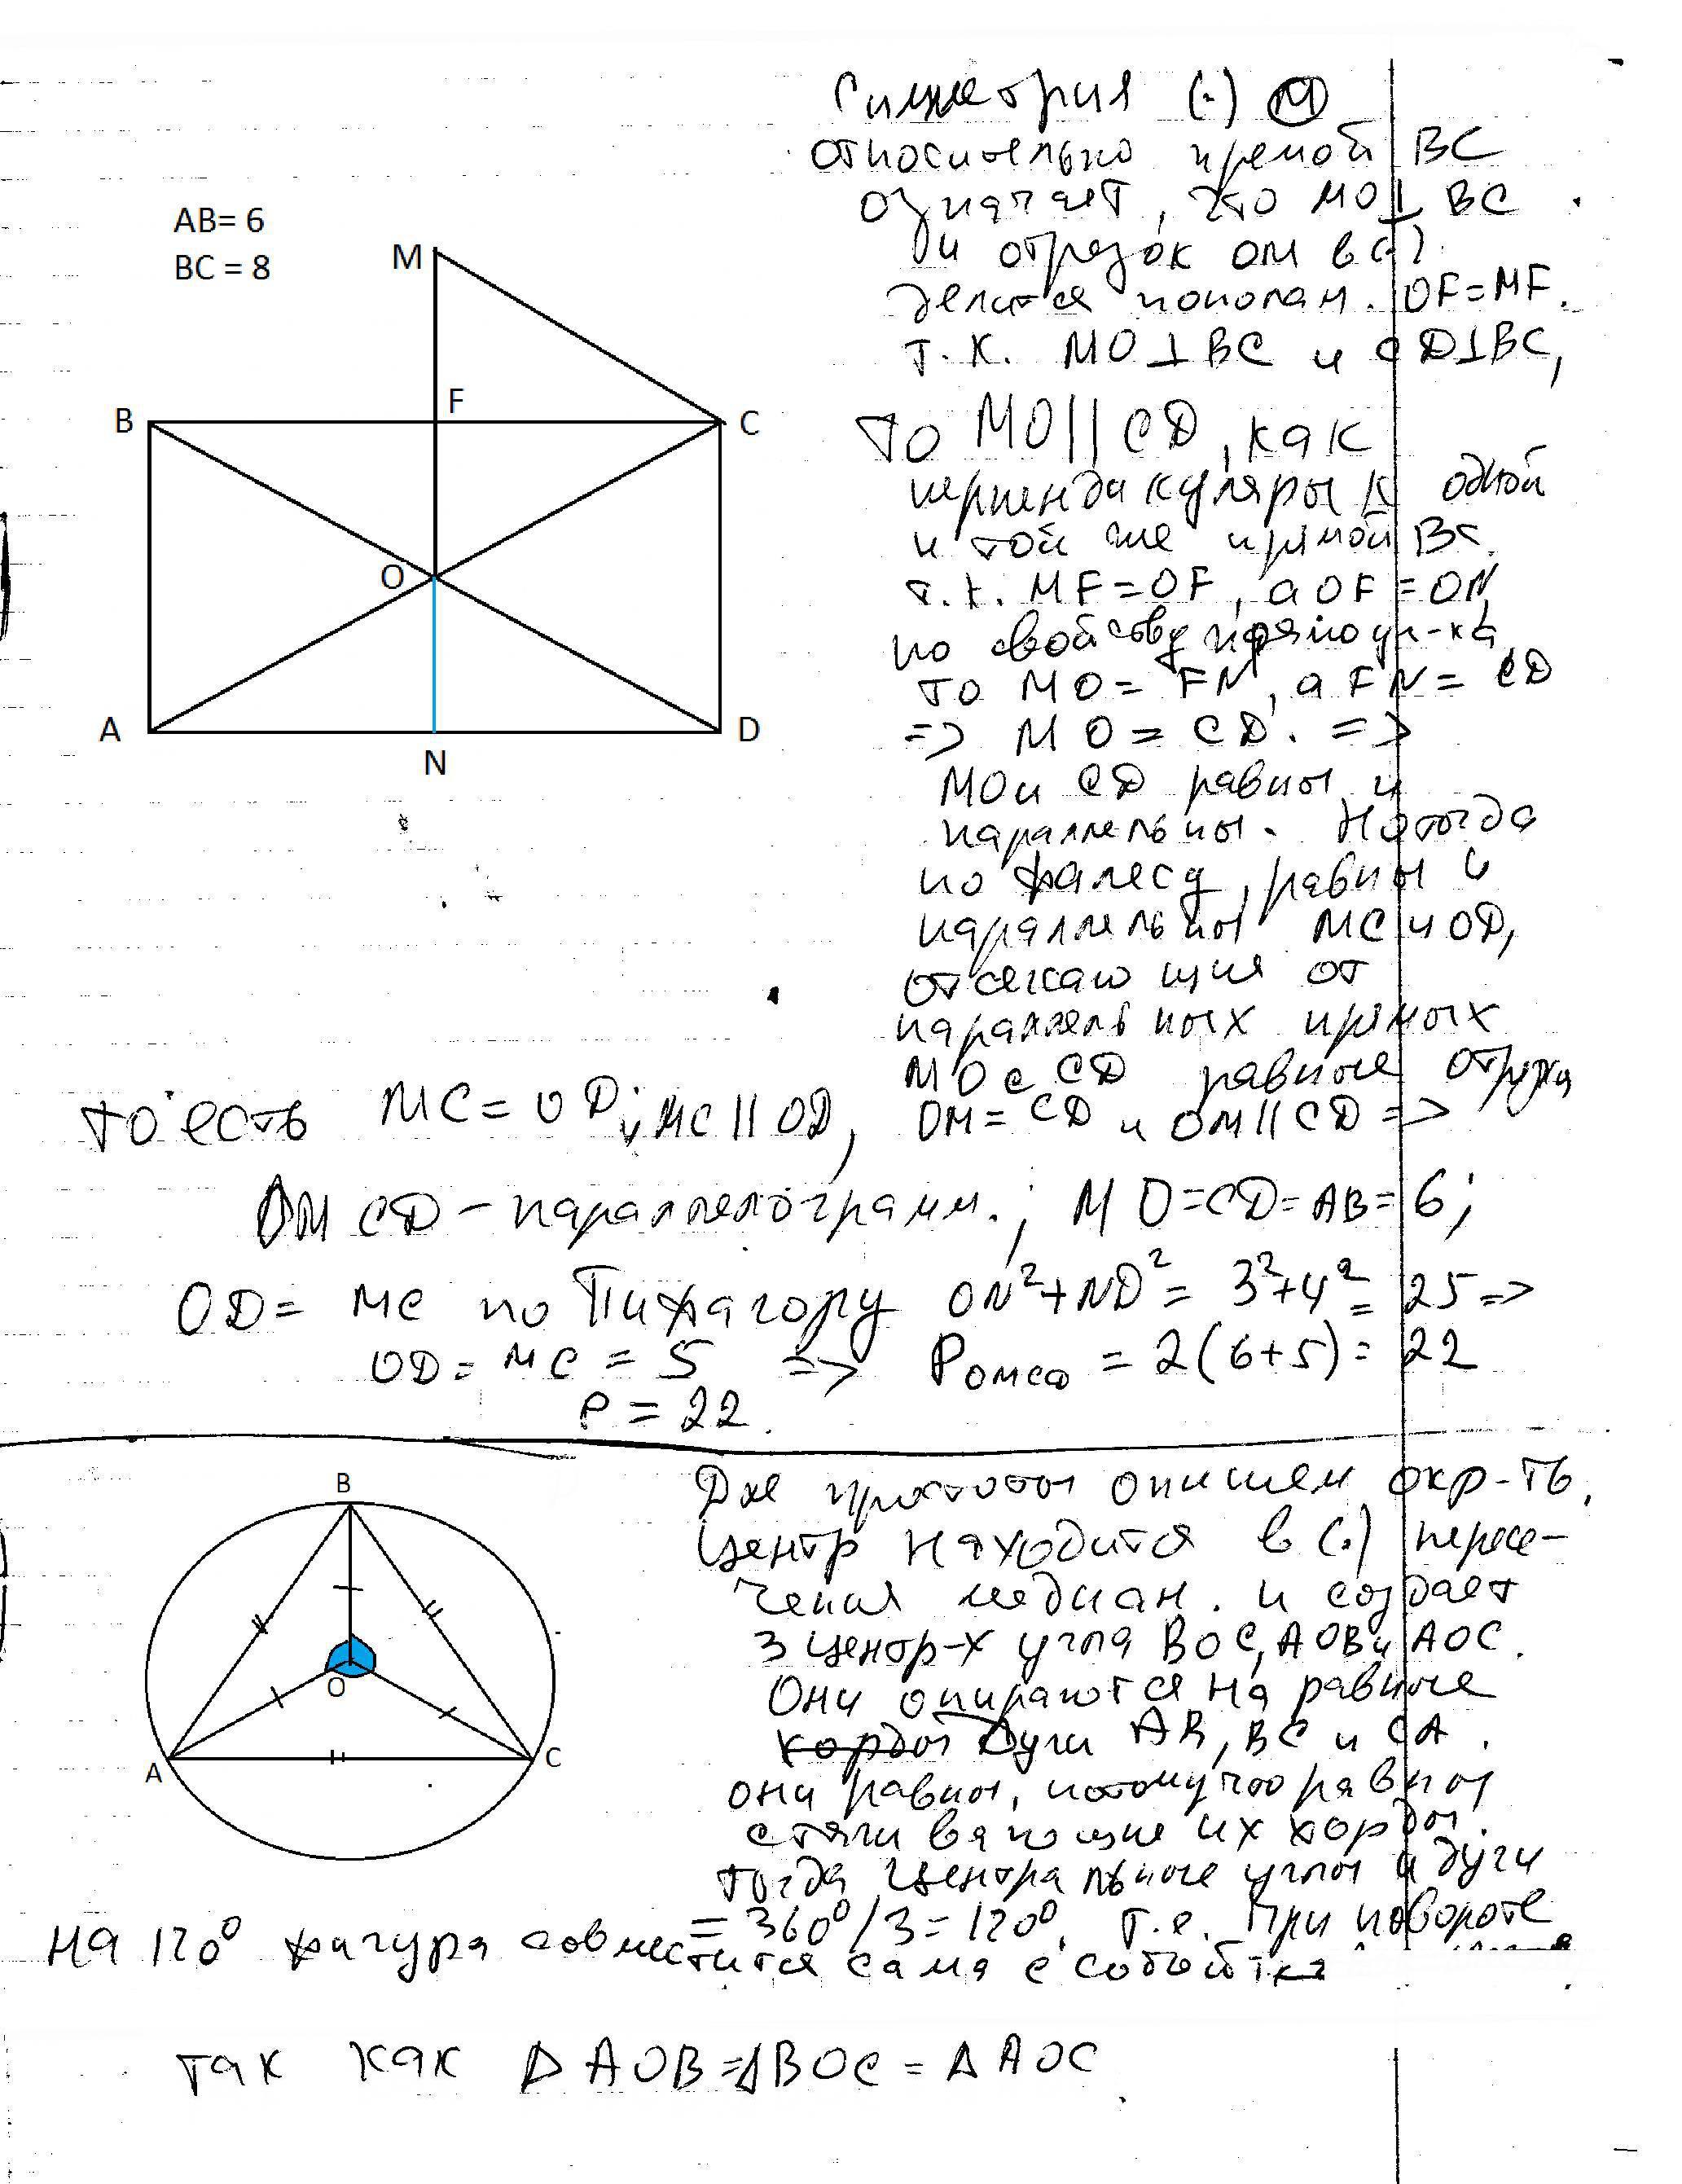 AB= 6
BC = 8
M
B
F
C
O
A
D
N
Симметрия (·) M
относительно прямой BC
означает, что MO⊥BC
и отрезок OM в (·)
делится пополам. OF=MF.
т.к. MO⊥BC и CD⊥BC,
то MO||CD, как
перпендикуляры к одной
и той же прямой BC.
т.к. MF=OF, а OF=ON
по свойству прямоуг-ка,
то MO= FN, а FN= CD
=> MO = CD. =>
MO и CD равны и
параллельны. Но тогда
по Фалесу, равны и
параллельны MC и OD,
отсекающия от
параллельных прямых
MO и CD равные отрезки
то есть MC=OD и MC||OD, OM=CD и OM||CD =>
OMCD-параллелограмм.; MO=CD=AB=6;
OD= MC по Пифагору ON²+ND²= 3²+4²= 25=>
OD= MC = 5 => Pomcd = 2(6+5)= 22
P = 22.
B
O
A
C
Для простоты опишем окр-ть.
Центр находится в (·) пересе-
чения медиан. и создает
3 центр-х угла BOC, AOB и AOC.
Они опираются на равные
хорды дуги AB, BC и CA.
они равны, потому что равны
стягивающие их хорды.
тогда центральные углы и дуги
= 360⁰/3=120⁰. т.е. При повороте
на 120⁰ фигура совместится сама с собой
так как Δ AOB=ΔBOC = Δ AOC.